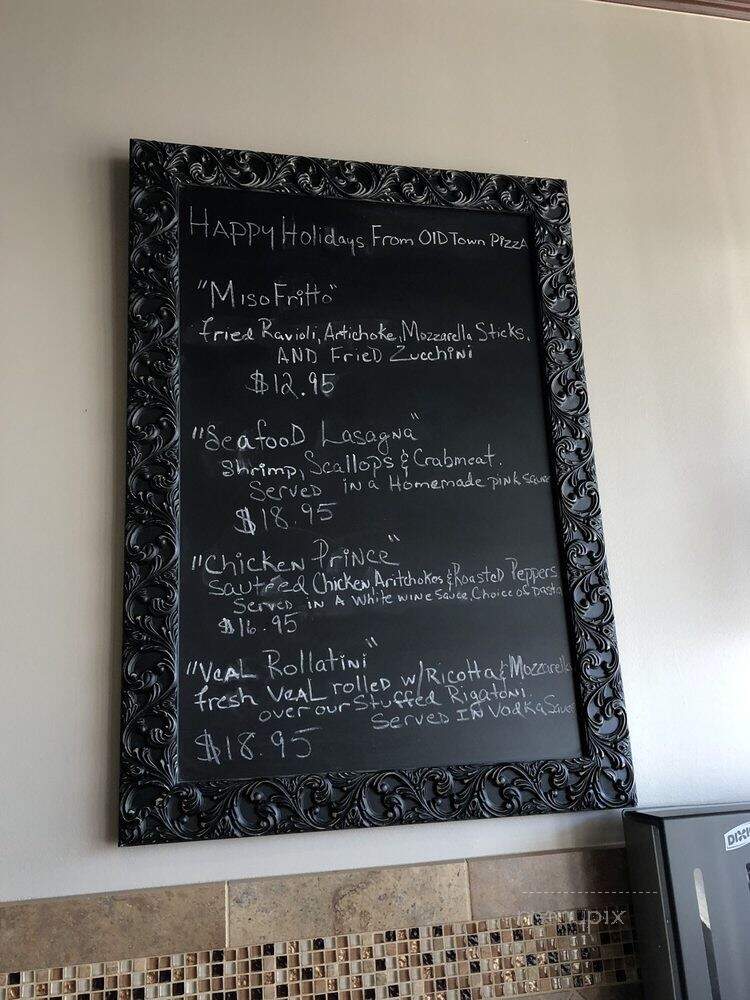 HAPPY Holidays From OlD Town PizzA
"Miso Fritto"
fried Ravioli, Artichoke, Mozzarella Sticks,
AND FrieD Zucchini
$12.95
"SeafooD Lasagna"
Shrimp, Scallops & Crabmeat.
ServeD in a Homemade pink sauce
$18.95
"Chicken Prince"
Sauteed Chicken Aritchokes & Roasted Peppers
Served IN A White wine Sauce, Choice of pasta
$16.95
"VeAL Rollatini"
fresh VeAL rolleD w/Ricotta & Mozzarella
over our Stuffed Rigatoni.
ServeD IN Vodka Sauce
$18.95
DIXIE
menupix